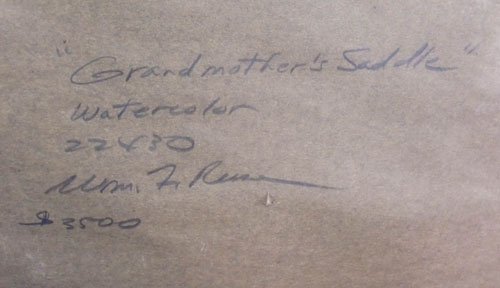 "Grandmother's Saddle"
Watercolor
22x30
Wm. F. Reese
$3500